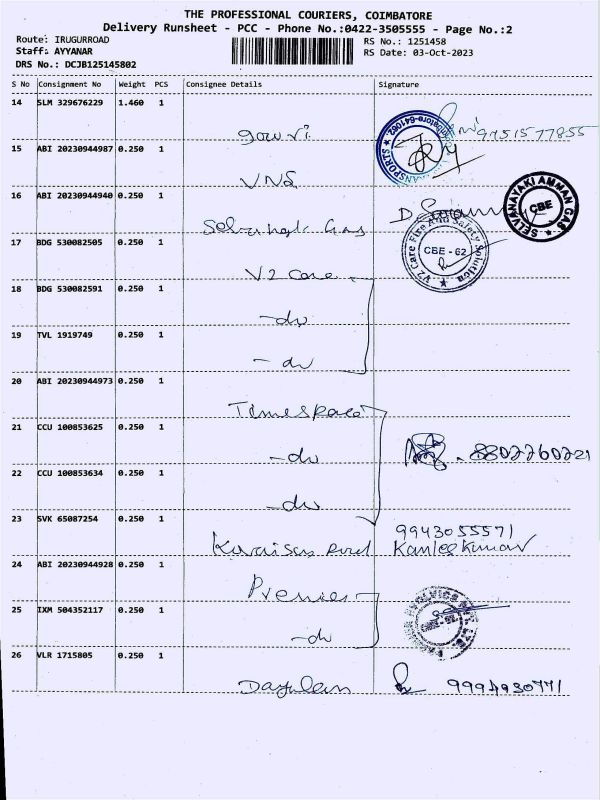 THE PROFESSIONAL COURIERS, COIMBATORE
Delivery Runsheet - PCC - Phone No.:0422-3505555 - Page No.:2
Route: IRUGURROAD RS No.: 1251458
Staff: AYYANAR RS Date: 03-Oct-2023
DRS No.: DCJB125145802
S No Consignment No Weight PCS Consignee Details Signature
14 SLM 329676229 1.460 1
gowri 9751577855
15 ABI 20230944987 0.250 1
VNS
16 ABI 20230944940 0.250 1
Gas
SELVANAYAKI AMMAN GAS
CBE
17 BDG 530082505 0.250 1
V2 Care
V2 Care Fire And Safety Solution
CBE - 62
18 BDG 530082591 0.250 1
-do
19 TVL 1919749 0.250 1
-do
20 ABI 20230944973 0.250 1
Timespace
21 CCU 100853625 0.250 1
-do
22 CCU 100853634 0.250 1
-do
23 SVK 65087254 0.250 1
9943055571
24 ABI 20230944928 0.250 1
Premier
25 IXM 504352117 0.250 1
-do
26 VLR 1715805 0.250 1
9994930771